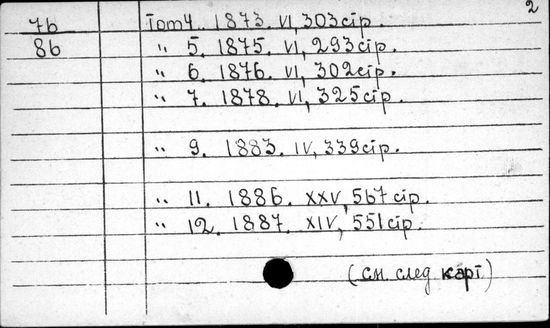 2
7b Том 4. 1873. VI, 303 стр.
8b " 5. 1875. VI, 293 стр.
" 6. 1876. VI, 302 стр.
" 7. 1878. VI, 325 стр.
" 9. 1883. IV, 339 стр.
" 11. 1886. XXV, 567 стр.
" 12. 1887. XIV, 551 стр.
(см. след. карт.)